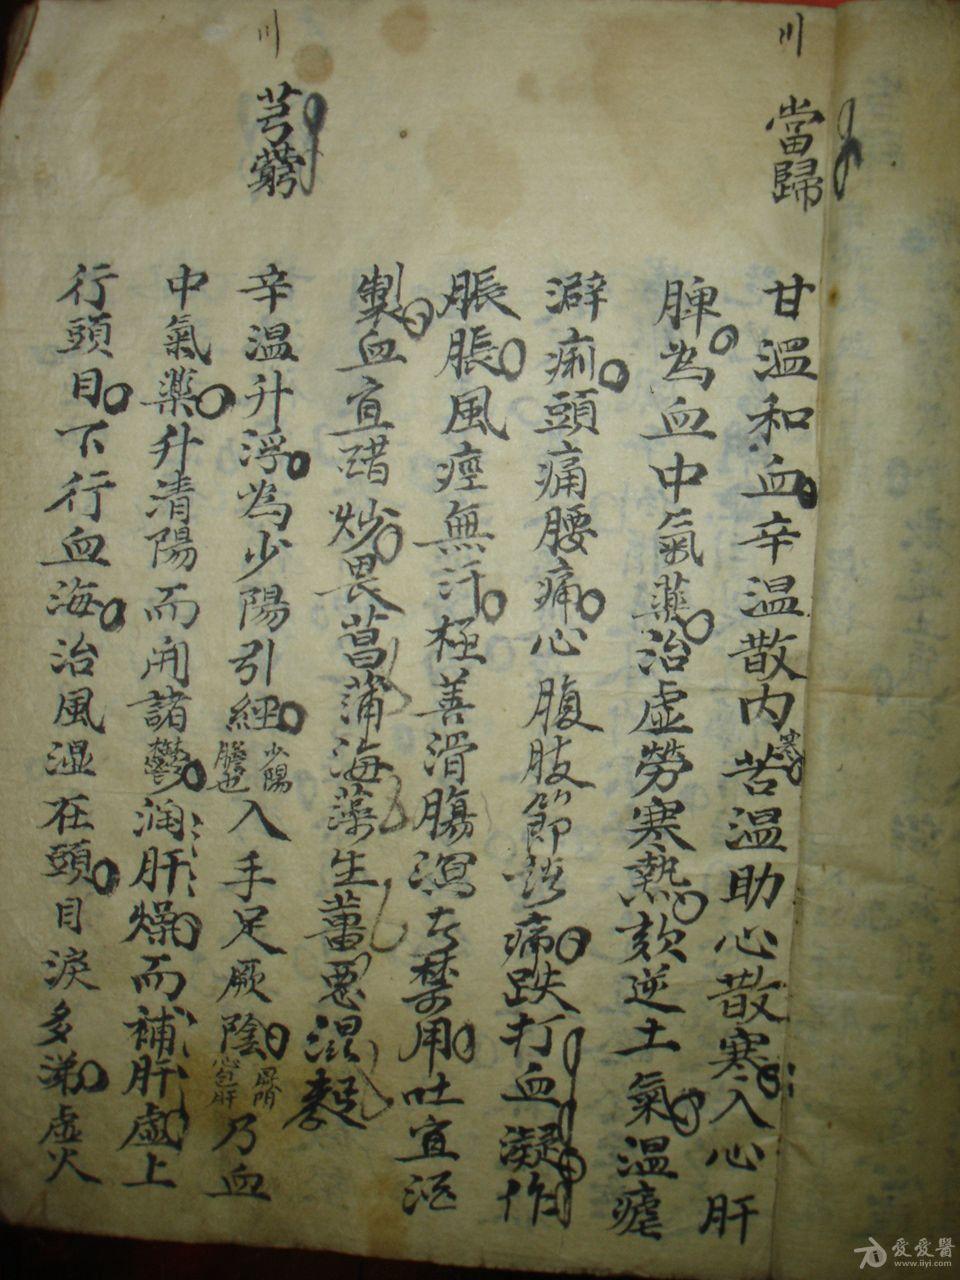 川
當歸
甘溫和血辛温散内寒苦温助心散寒入心肝
脾為血中氣藥治虛勞寒熱欬逆土氣温瘧
澼痢頭痛腰痛心腹肢節諸痛跌打血凝作
脹脹風痙無汗極善滑腸瀉者禁用吐宜酒
製血宜醋炒畏菖蒲海藻生薑惡濕麪
川
芎藭
辛温升浮為少陽引經少陽膽也入手足厥陰厥陰心包肝乃血
中氣藥升清陽而開諸鬱潤肝燥而補肝虛上
行頭目下行血海治風湿在頭目淚多涕虛火
愛愛醫
www.iiyi.com